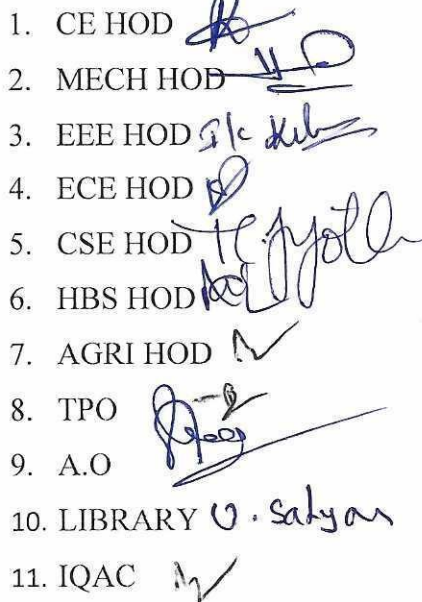 1. CE HOD
2. MECH HOD
3. EEE HOD I/c
4. ECE HOD
5. CSE HOD
6. HBS HOD
7. AGRI HOD
8. TPO
9. A.O
10. LIBRARY U. Satyan
11. IQAC